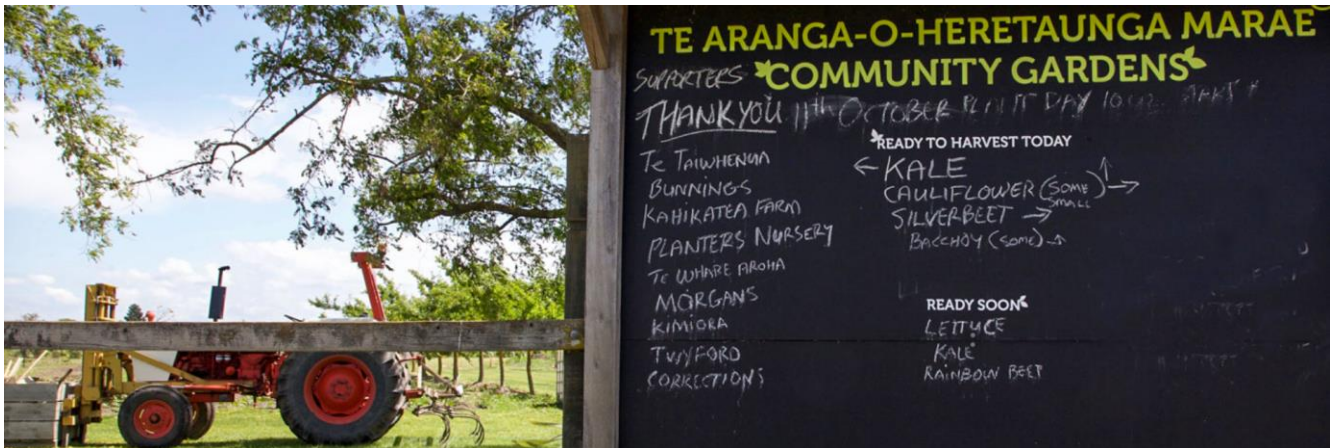 TE ARANGA-O-HERETAUNGA MARAE
COMMUNITY GARDENS
SUPPORTERS
THANK YOU 11TH OCTOBER PLANT DAY
TE TAIWHENUA
BUNNINGS
KAHIKATEA FARM
PLANTERS NURSERY
TE WHARE AROHA
MORGANS
KIMIORA
TWYFORD
CORRECTIONS
READY TO HARVEST TODAY
← KALE
CAULIFLOWER (SOME SMALL) ↑ →
SILVERBEET →
BACCHOY (SOME) →
READY SOON
LETTUCE
KALE
RAINBOW BEET